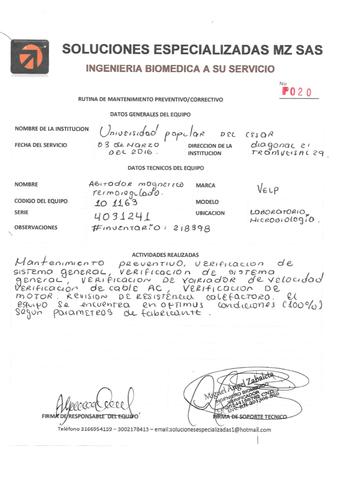 SOLUCIONES ESPECIALIZADAS MZ SAS
INGENIERIA BIOMEDICA A SU SERVICIO
No
F020
RUTINA DE MANTENIMIENTO PREVENTIVO/CORRECTIVO
DATOS GENERALES DEL EQUIPO
NOMBRE DE LA INSTITUCION Universidad popular DEL CESAR
FECHA DEL SERVICIO 03 de Marzo DEL 2016. DIRECCION DE LA INSTITUCION diagonal 21 Transversal 29.
DATOS TECNICOS DEL EQUIPO
NOMBRE Agitador magnetico Termoregulado. MARCA VELP
CODIGO DEL EQUIPO 101163 MODELO
SERIE 4031241 UBICACION LABORATORIO Microbiología.
OBSERVACIONES #inventario: 218398
ACTIVIDADES REALIZADAS
Mantenimiento preventivo, verificacion de
sistema general, verificacion de sistema
general, verificacion de variador de velocidad
verificacion de cable AC, verificacion de
motor. Revision de resistencia calefactora. El
equipo se encuentra en optimus condiciones (100%)
Según parametros de fabricante.
Miguel Angel Zabaleta
FIRMA DE RESPONSABLE DEL EQUIPO FIRMA DE SOPORTE TECNICO
Teléfono 3166954159 – 3002178413 – email:solucionesespecializadas1@hotmail.com